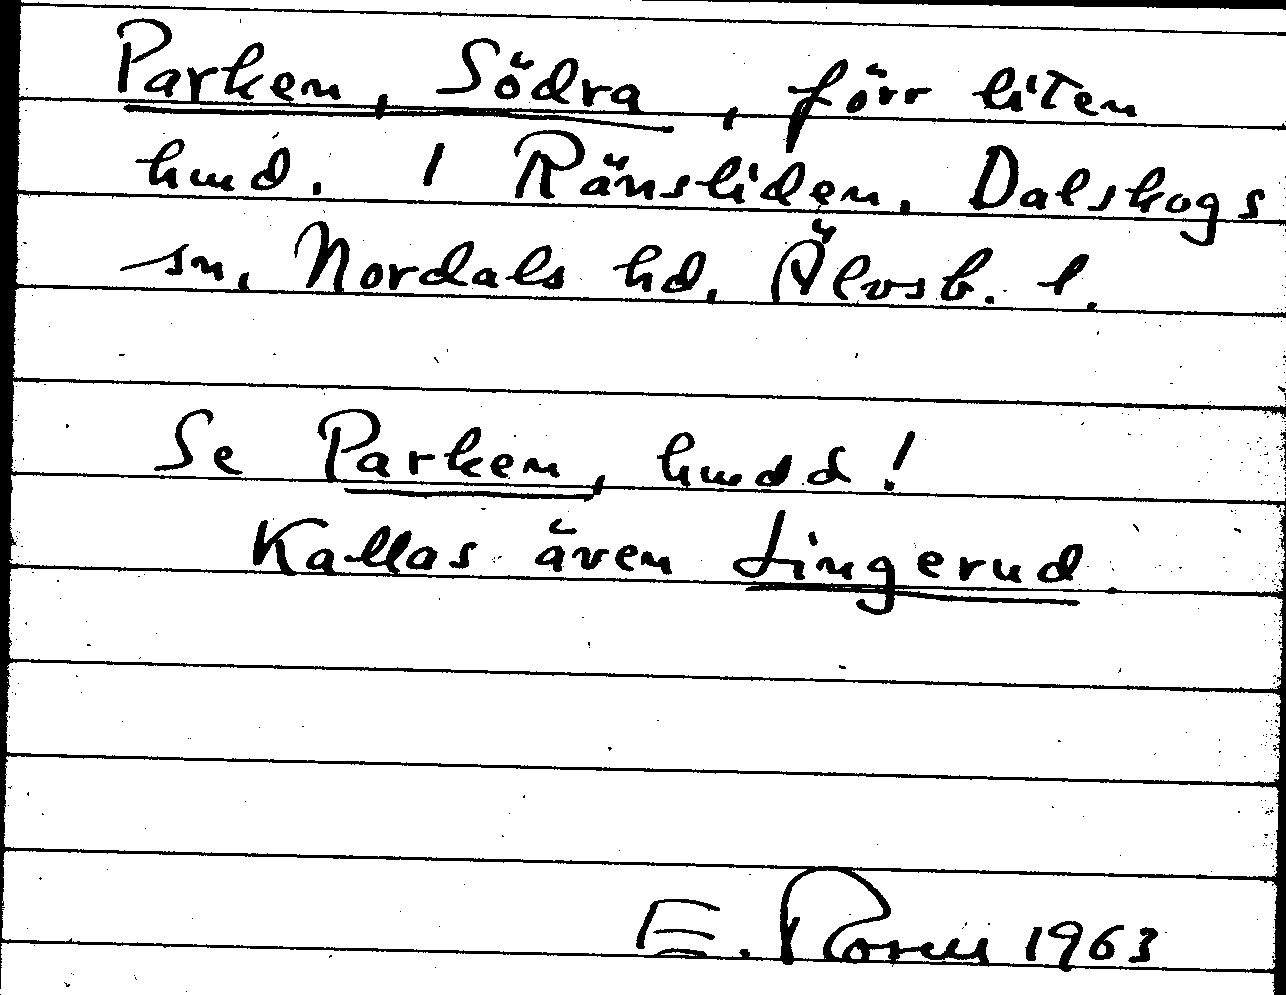 Parken, Södra, förr liten
hmd. 1 Ränsliden. Dalskogs
sn. Nordals hd. Älvsb. l.
Se Parken, hmdd!
Kallas även Lingerud
E. 1963